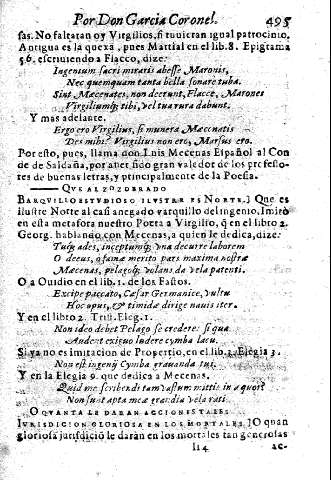 Por Don Garcia Coronel. 495
sas. No faltatan oy Virgilios, si tuuieran igual patrocinio.
Antigua es la quexa, pues Martial en el lib. 8. Epigrama
56. escriuiendo a Flacco, dize:
Ingenium sacri miraris abesse Maronis,
Nec quemquam tanta bella sonare tuba.
Sint Mæcenates, non deerunt, Flacce, Marones
Virgiliumq; tibi, vel tua rura dabunt.
Y mas adelante.
Ergo ero Virgilius, si munera Mæcenatis
Des mihi? Virgilius non ero, Marsus ero.
Por esto, pues, llama don Luis Mecenas Español al Con
de de Saldaña, por auer sido gran valedor de los professo-
res de buenas letras, y principalmente de la Poesia.
—— QVE AL ZOZOBRADO
BARQVILLO ESTVDIOSO ILVSTRE ES NORTE.] Que es
ilustre Norte al casi anegado varquillo del ingenio. Imirò
en esta metafora nuestro Poeta a Virgilio, q̃ en el libro 2.
Georg. hablando con Mecenas, a quien le dedica, dize:
Tuq; ades, inceptumq; vna decurre laborem
O decus, o famæ merito pars maxima nostræ
Mæcenas, pelagoq; volans da vela patenti.
O a Ouidio en el lib. 1. de los Fastos.
Excipe paccato, Cæsar Germanice, vultu
Hoc opus, & timidæ dirige nauis iter.
Y en el libro 2. Trist. Eleg. 1.
Non ideo debet Pelago se credere: si qua
Audet exiguo ludere cymba lacu.
Si ya no es imitacion de Propertio, en el lib. 1. Elegia 3.
Non est ingenij Cymba grauanda tui.
Y en la Elegia 9. que dedica a Mecenas.
Quid me scribendi tam vastum mittis in æquor?
Non sunt apta meæ grandia vela rati.
O QVANTA LE DARAN ACCIONES TALES
IVRISDICION GLORIOSA EN LOS MORTALES.] O quan
gloriosa jurisdició le darán en los mortales tan generosas
Ii4 ac-